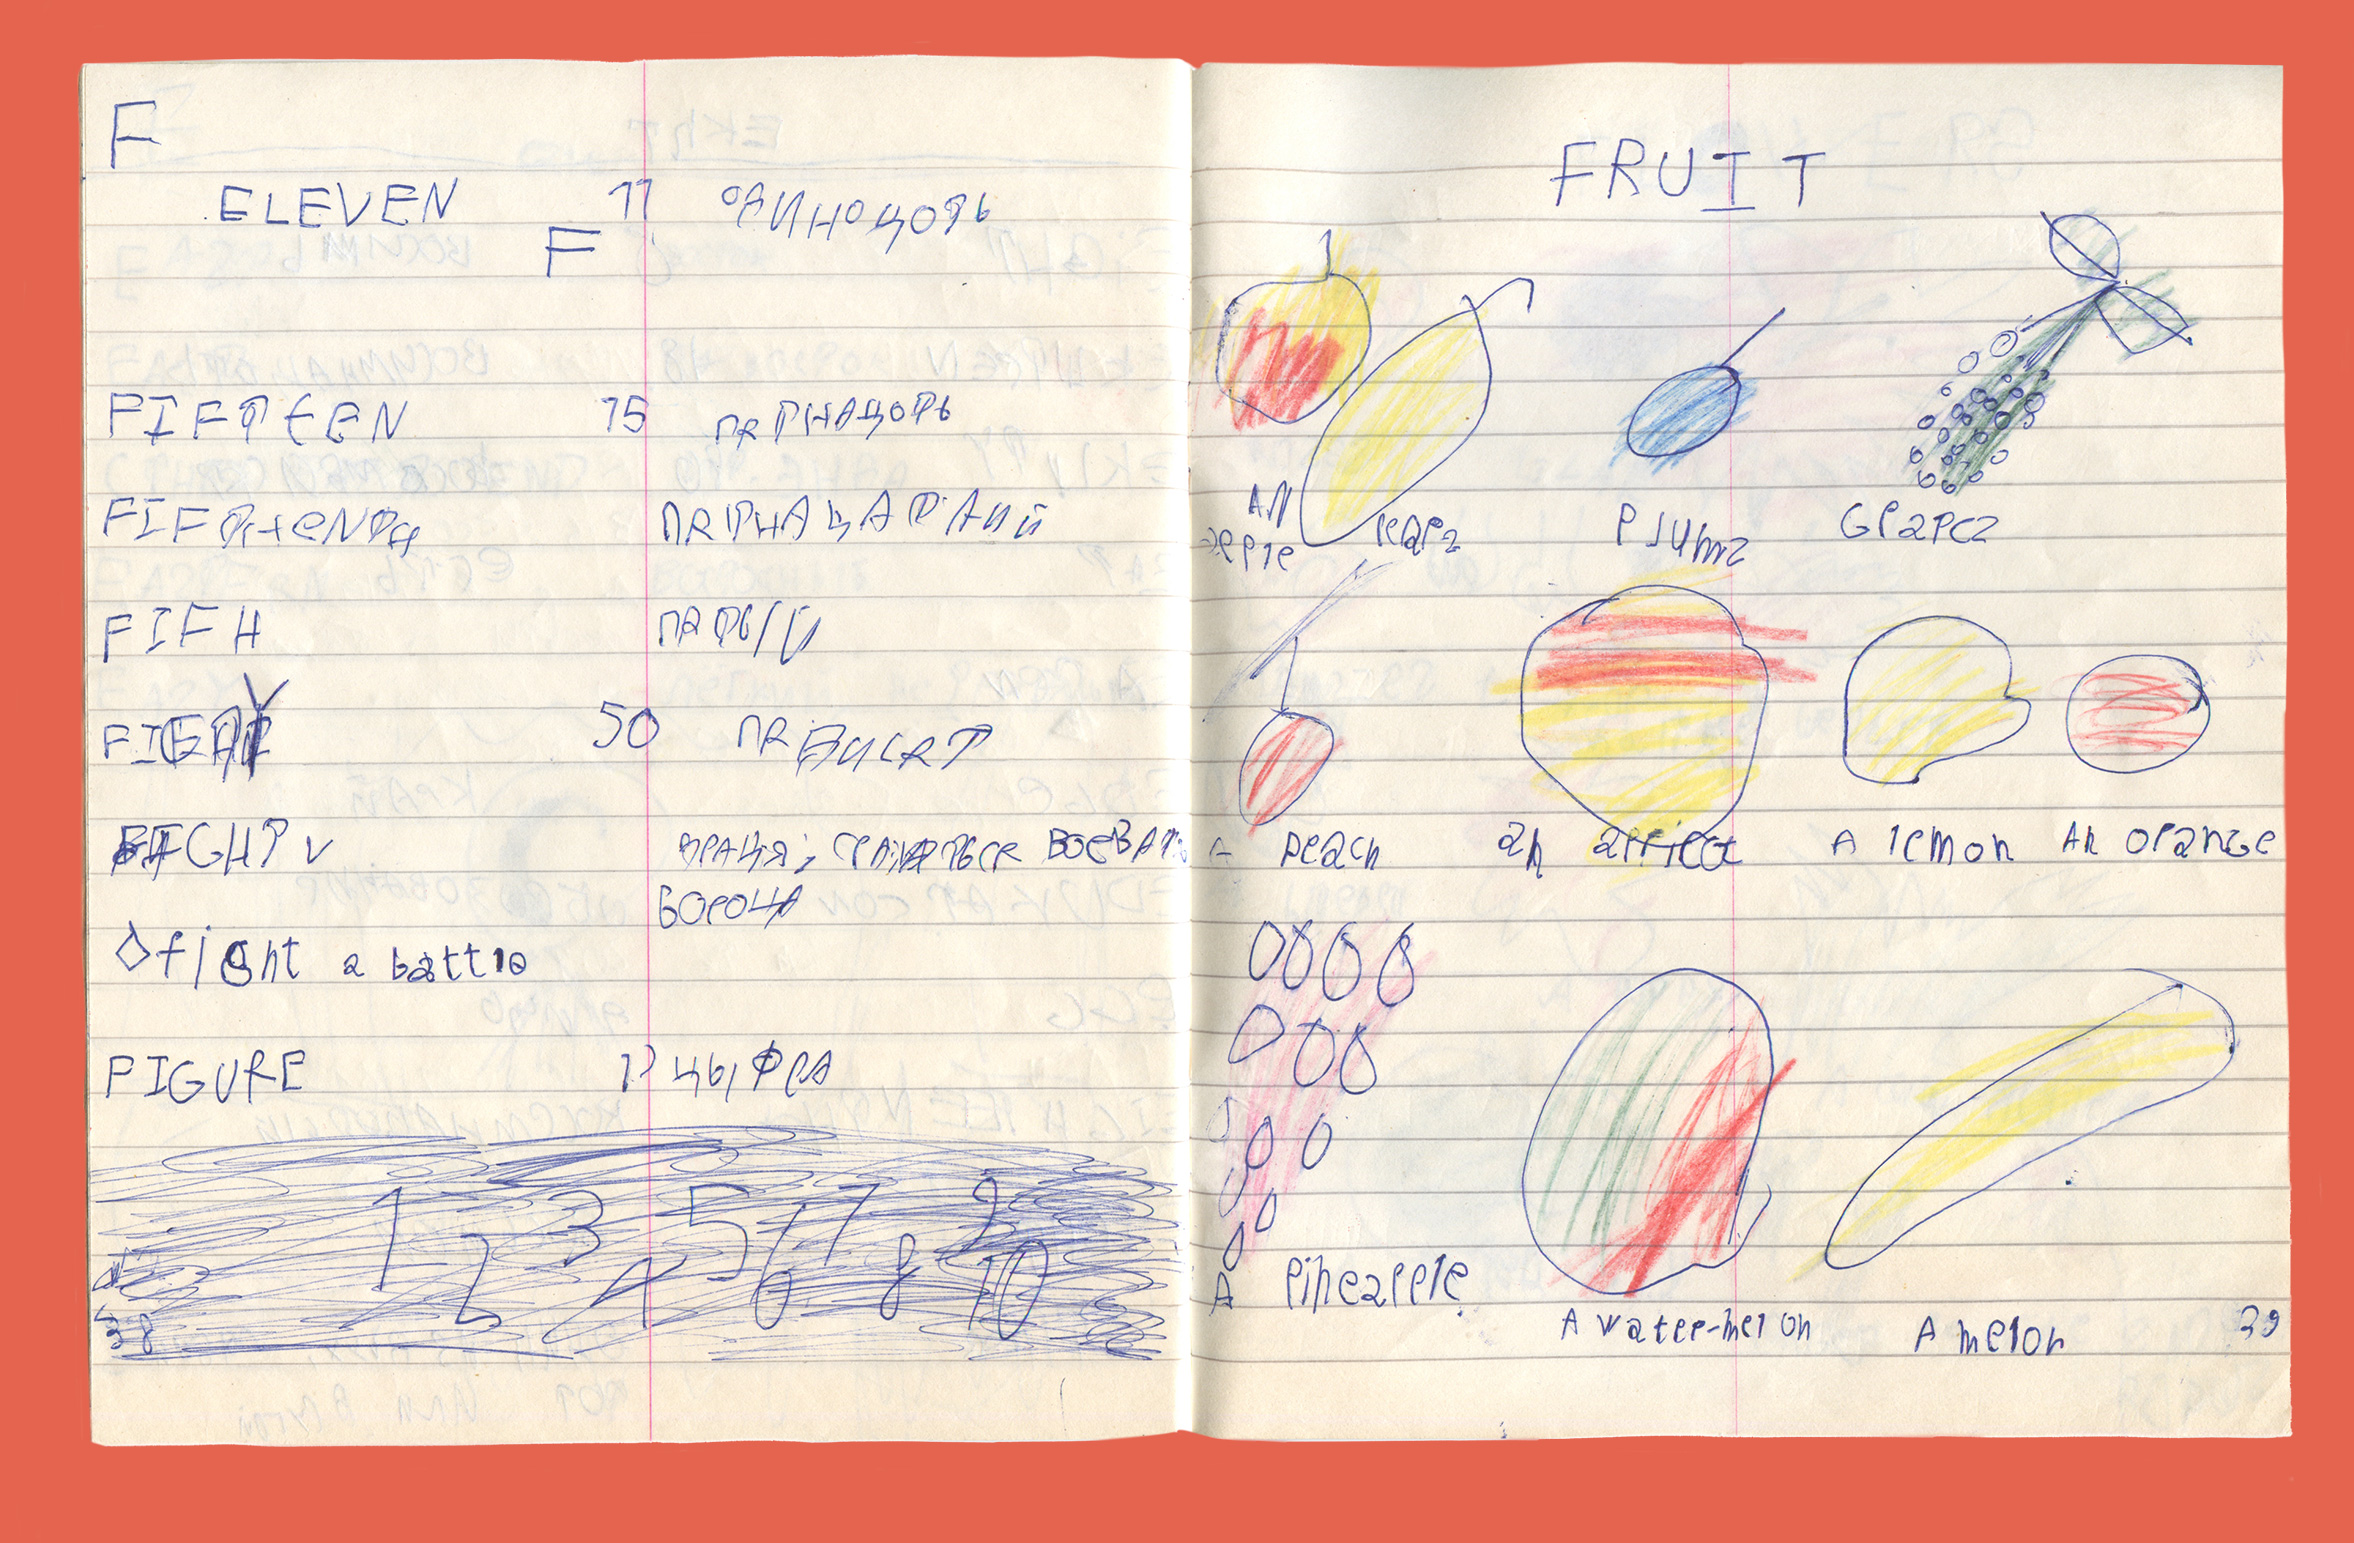 F
ELEVEN 11 одИНОЦОТЬ
F
FIFTEEN 15 ПЯТНАЦОТЬ
FIFTHENTH ПЯТНАЦАТАИЙ
FIFH ПЯТЫЙ
50 ПЯДИСЯТ
FIGHT V ВОЕВАТЬ
fight a battle
FIGURE 1) ЦЫФРА
1 2 3 4 5 6 7 8 9 10
38
FRUIT
AN apple pears plums Grapes
A peach an apricot A lemon AN orange
A pineapple
A water-melon A melon 39